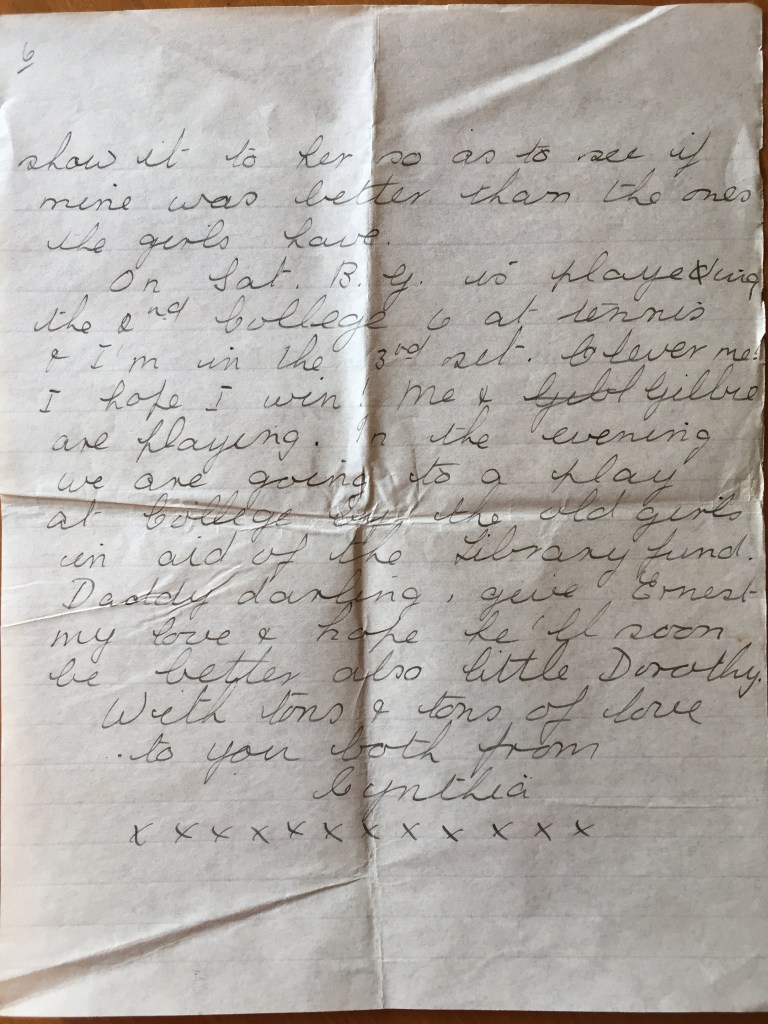 6
show it to her so as to see if
mine was better than the ones
the girls have.
On Sat. B. G. is playing
the 2nd College 6 at tennis
& I'm in the 3rd set. Clever me!
I hope I win! Me & Gilbie
are playing. In the evening
we are going to a play
at College by the old girls
in aid of the Library fund.
Daddy darling, give Ernest
my love & hope he'll soon
be better also little Dorothy.
With tons & tons of love
to you both from
Cynthia
x x x x x x x x x x x x